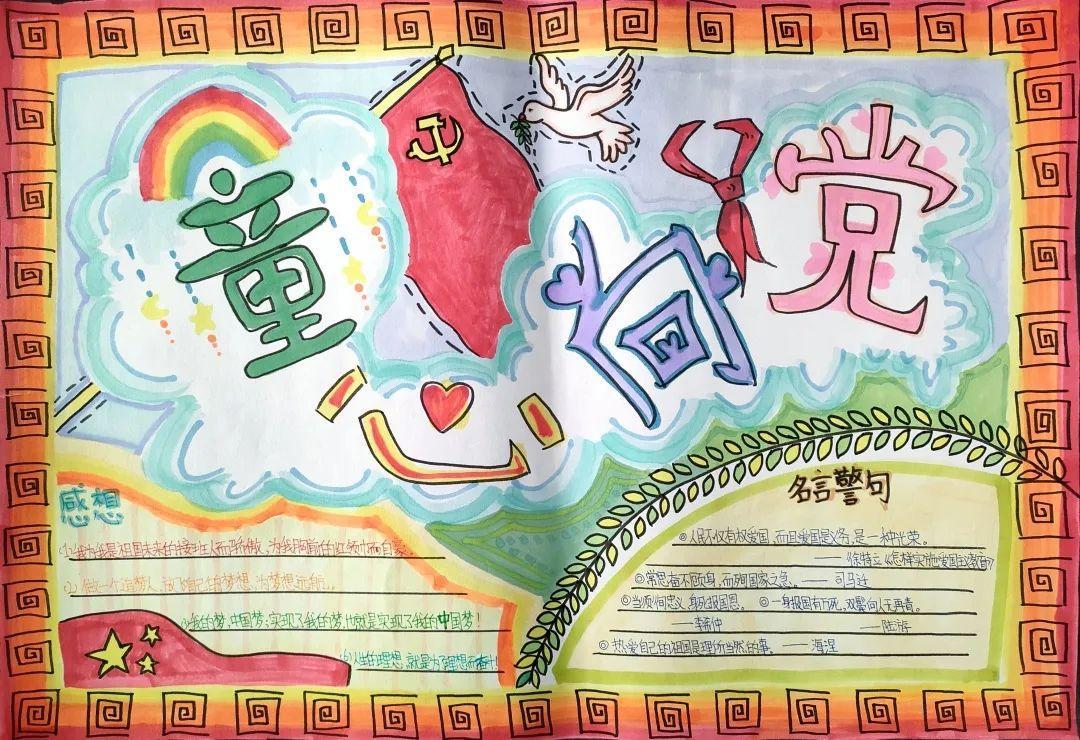 童心向党
感想
(1)我为我是祖国未来的接班人而骄傲,为我胸前的红领巾而自豪。
(2)做一个追梦人,放飞自己的梦想,为梦想远航...
(3)我的梦,中国梦,实现了我的梦,也就是实现了我的中国梦!
(4)人生的理想,就是为了理想而奋斗!
名言警句
◎人民不仅有权爱国,而且爱国是义务,是一种光荣。
——徐特立《怎样实施爱国主义教育?》
◎常思奋不顾身,而殉国家之急。——司马迁
◎当须徇忠义,身死报国恩。 ◎一身报国有万死,双鬓向人无再青。
——李希仲 ——陆游
◎热爱自己的祖国是理所当然的事。——海涅